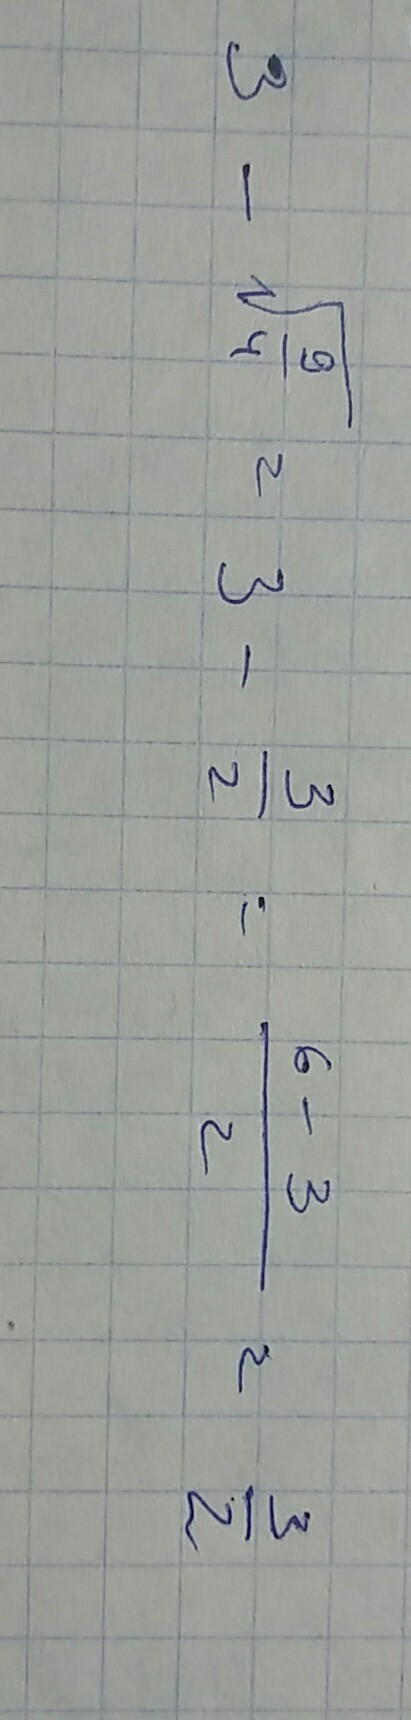 3 - √(9/4) = 3 - 3/2 = (6 - 3)/2 = 3/2